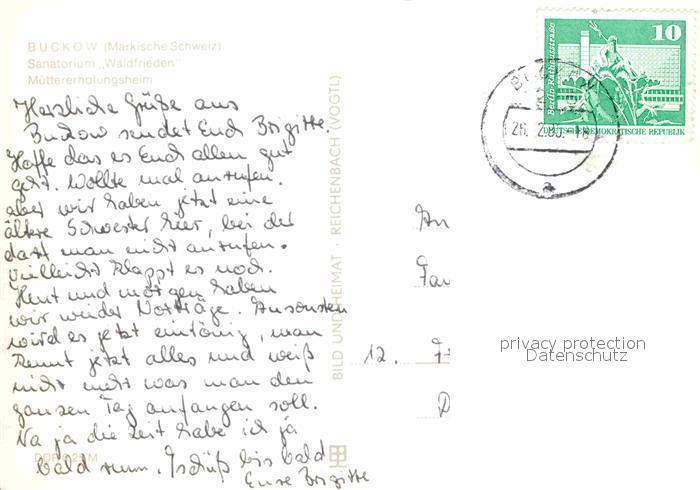 BUCKOW (Märkische Schweiz)
Sanatorium „Waldfrieden"
Müttererholungsheim
Herzliche Grüße aus
Buckow sendet Euch Brigitte.
Hoffe das es Euch allen gut
geht. Wollte mal anrufen.
aber wir haben jetzt eine
ältere Schwester hier, bei der
darf man nicht anrufen.
Vielleicht klappt es noch.
Heut und morgen haben
wir wieder Vorträge. Ansonsten
wird es jetzt eintönig, man
kennt jetzt alles und weiß
nicht mehr was man den
ganzen Tag anfangen soll.
Na ja die Zeit habe ich ja
bald rum. Tschüß bis bald
Eure Brigitte
BILD UND HEIMAT · REICHENBACH (VOGTL)
10
Berlin, Rathausstraße
DEUTSCHE DEMOKRATISCHE REPUBLIK
BUCKOW
26. 2.80
a
An
Fam
12.
privacy protection
Datenschutz